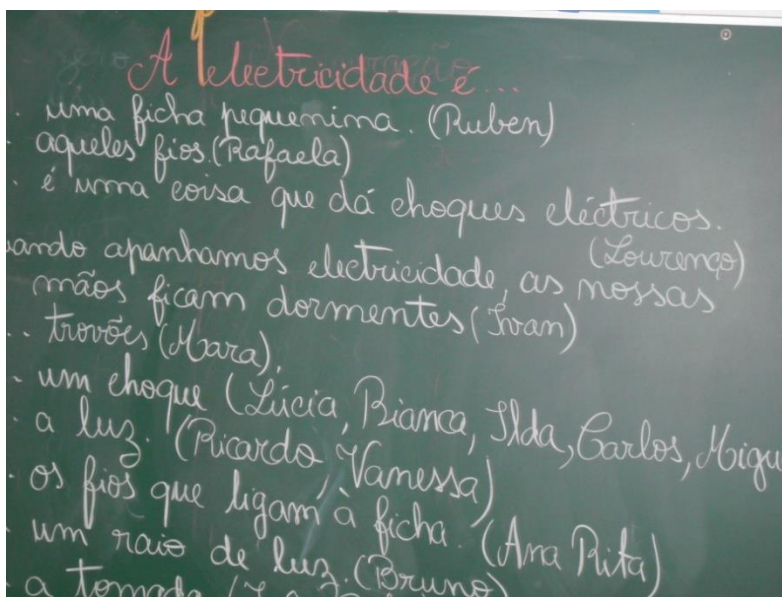 A electricidade é...
. uma ficha pequenina. (Ruben)
. aqueles fios. (Rafaela)
. é uma coisa que dá choques eléctricos.
(Lourenço)
uando apanhamos electricidade, as nossas
mãos ficam dormentes (Ivan)
.. trovões (Mara),
. um choque (Lúcia, Bianca, Ilda, Carlos, Migu
. a luz. (Ricardo, Vanessa)
. os fios que ligam à ficha. (Ana Rita)
. um raio de luz. (Bruno)
. a tomada